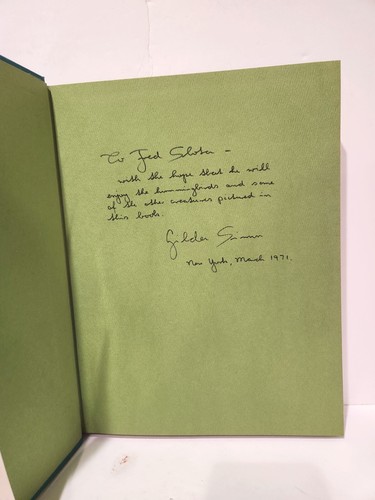 To Fred Slota –
with the hope that he will
enjoy the hummingbirds and some
of the other creatures pictured in
this book.
New York, March 1971.